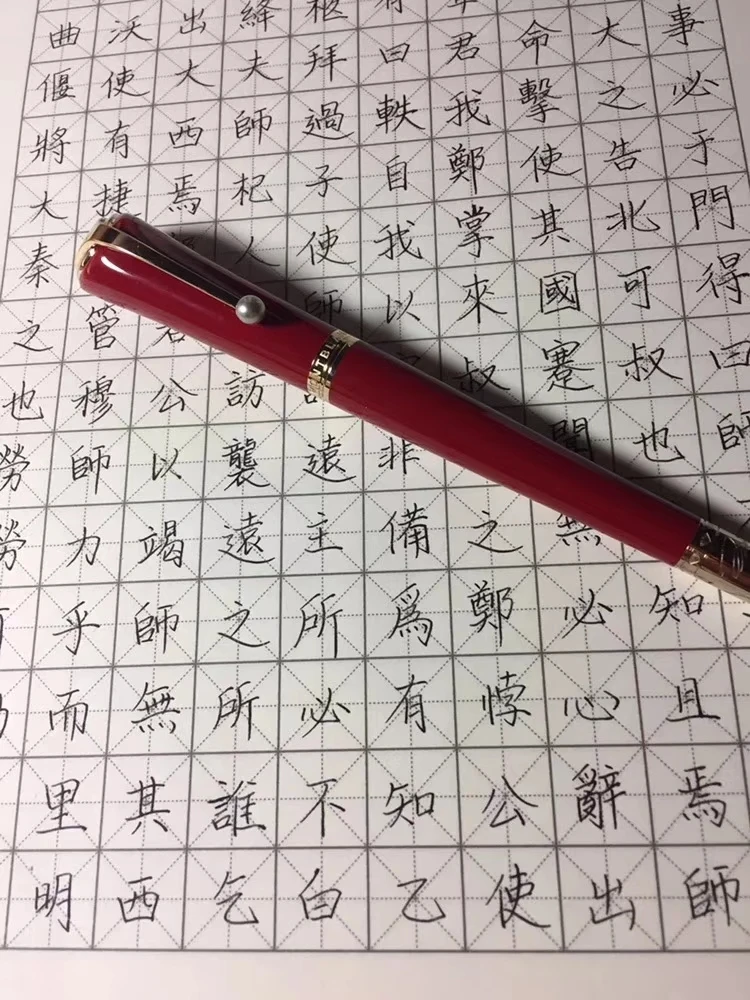 曲沃出絳柩有
偃使大夫拜曰君命大事
將有西師過軼我擊之必
大捷焉杞子自鄭使告于
秦人使我掌其北門
之管若師以來國可得
也穆公訪叔蹇叔曰
勞師以襲遠非聞也師
勞力竭遠主備之無
乎師之所爲鄭必知
而無所必有悖心且
里其誰不知公辭焉
明西乞白乙使出師